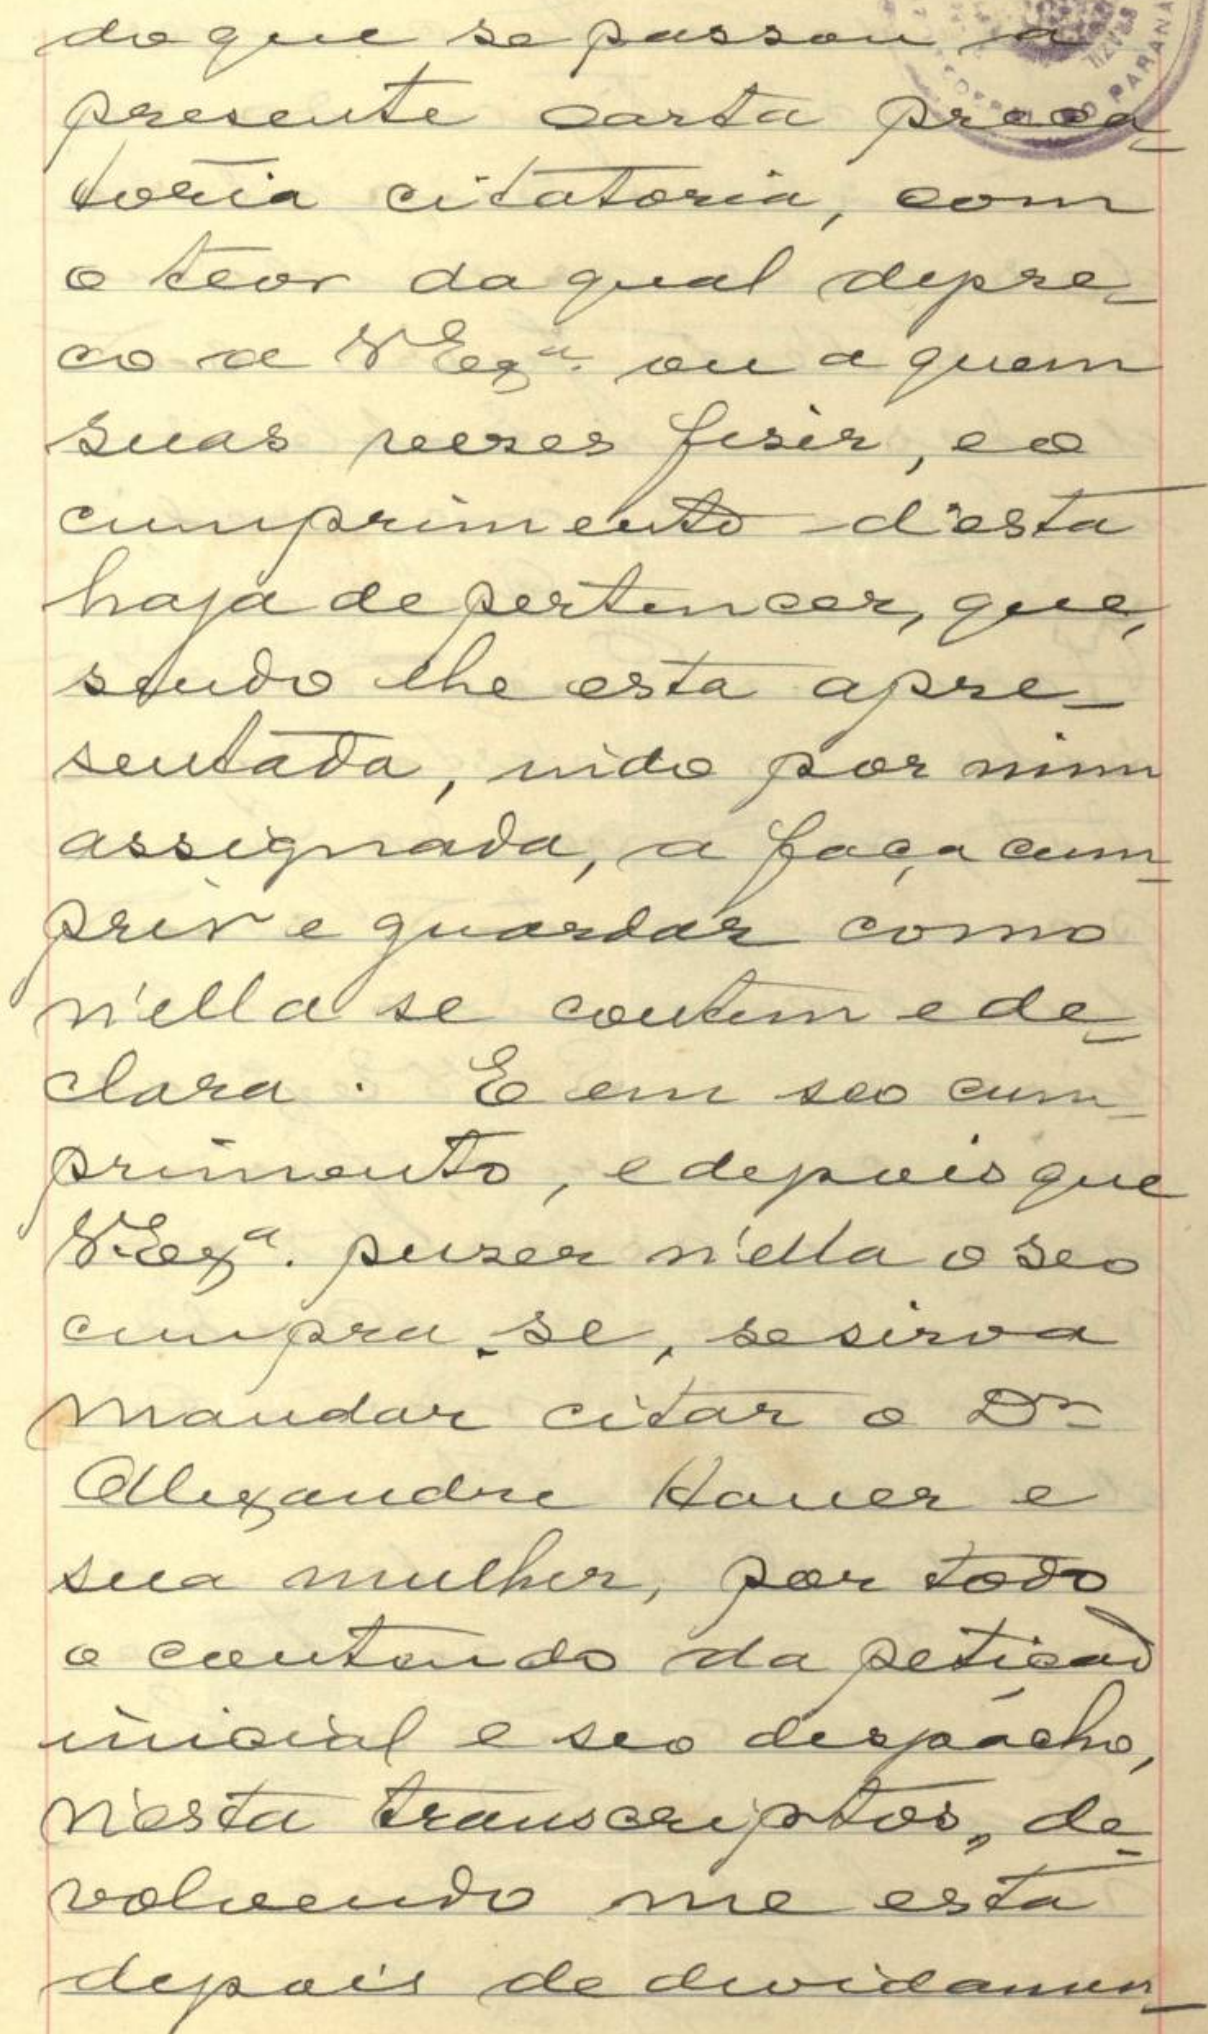 do que se passou a
presente carta preca-
toria citatoria, com
o teor da qual depre-
co a V Exª. ou a quem
suas vezes fisér, e o
cumprimento d'esta
haja de pertencer, que,
sendo lhe esta apre-
sentada, indo por mim
assignada, a faça cum-
prir e guardar como
n'ella se contem e de-
clara. E em seo cum-
primento, e depois que
V. Exª. puzer n'ella o seo
cumpra-se, se sirva
mandar citar o Dr
Alexandre Hauer e
sua mulher, por todo
o contendo da petiçaõ
inicial e seo despácho,
n'esta transcriptos, de-
volvendo me esta
depois de devidamen-
PARANA